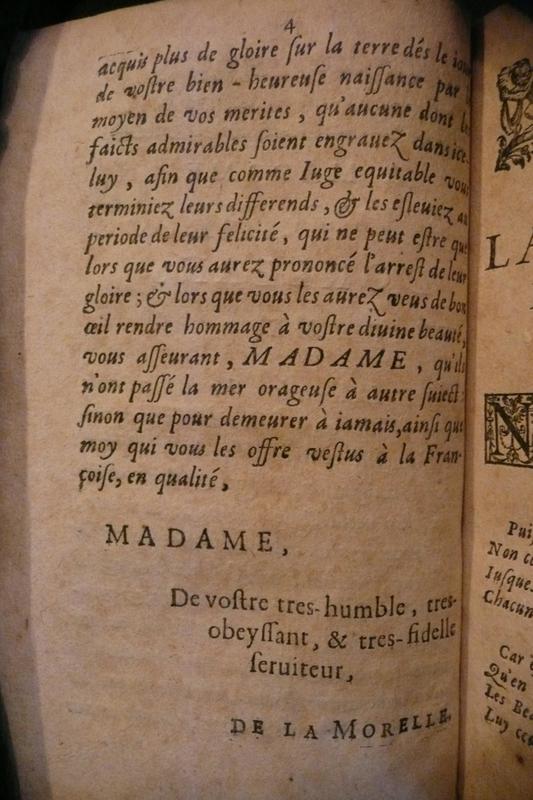 4
acquis plus de gloire ſur la terre dés le iour
de voſtre bien-heureuſe naiſſance par le
moyen de vos merites, qu'aucune dont les
faicts admirables ſoient engrauez dans ice-
luy, afin que comme Iuge equitable vous
terminiez leurs differends, & les eſleuiez au
periode de leur felicité, qui ne peut eſtre que
lors que vous aurez prononcé l'arreſt de leur
gloire; & lors que vous les aurez veus de bon
œil rendre hommage à voſtre diuine beauté,
vous aſſeurant, MADAME, qu'ils
n'ont paſſé la mer orageuſe à autre ſuiect
ſinon que pour demeurer à iamais, ainſi que
moy qui vous les offre veſtus à la Fran-
çoiſe, en qualité,
MADAME,
De voſtre tres-humble, tres-
obeyſſant, & tres-fidelle
ſeruiteur,
DE LA MORELLE.
LA
N
Non
Iuſque
Chacun
Car
Qu'en
Les
Luy